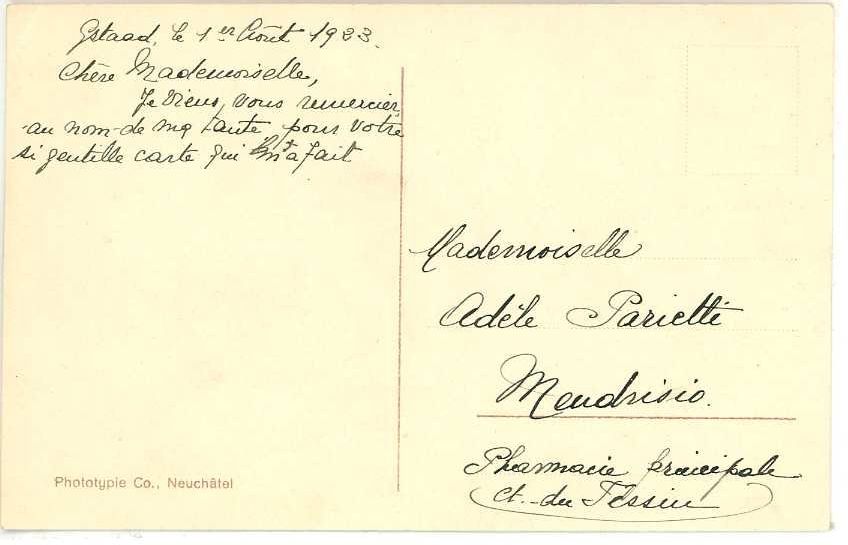 Gstaad, le 1er Août 1923.
Chère Mademoiselle,
Je viens, vous remercier,
au nom de ma tante pour votre
si gentille carte qui m'a fait
Mademoiselle
Adèle Parietti
Mendrisio.
Pharmacie principale
Ct. du Tessin
Phototypie Co., Neuchâtel